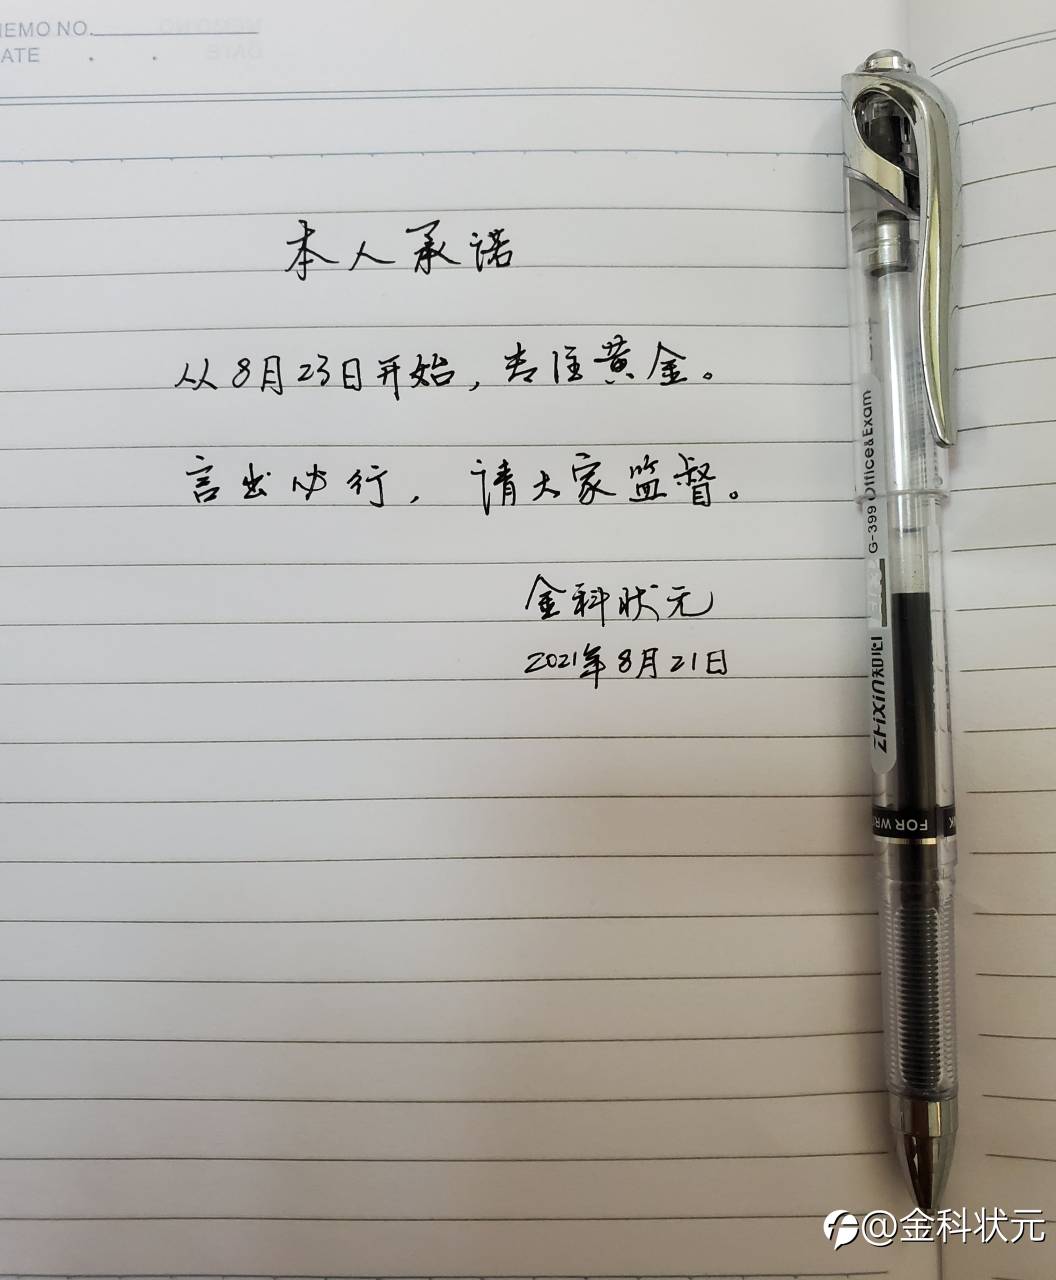 MEMO NO.
DATE
本人承诺
从8月23日开始，专注黄金。
言出必行，请大家监督。
金科状元
2021年8月21日
G-399 Office&Exam
ZHiXiN知心
FOR WR
@金科状元